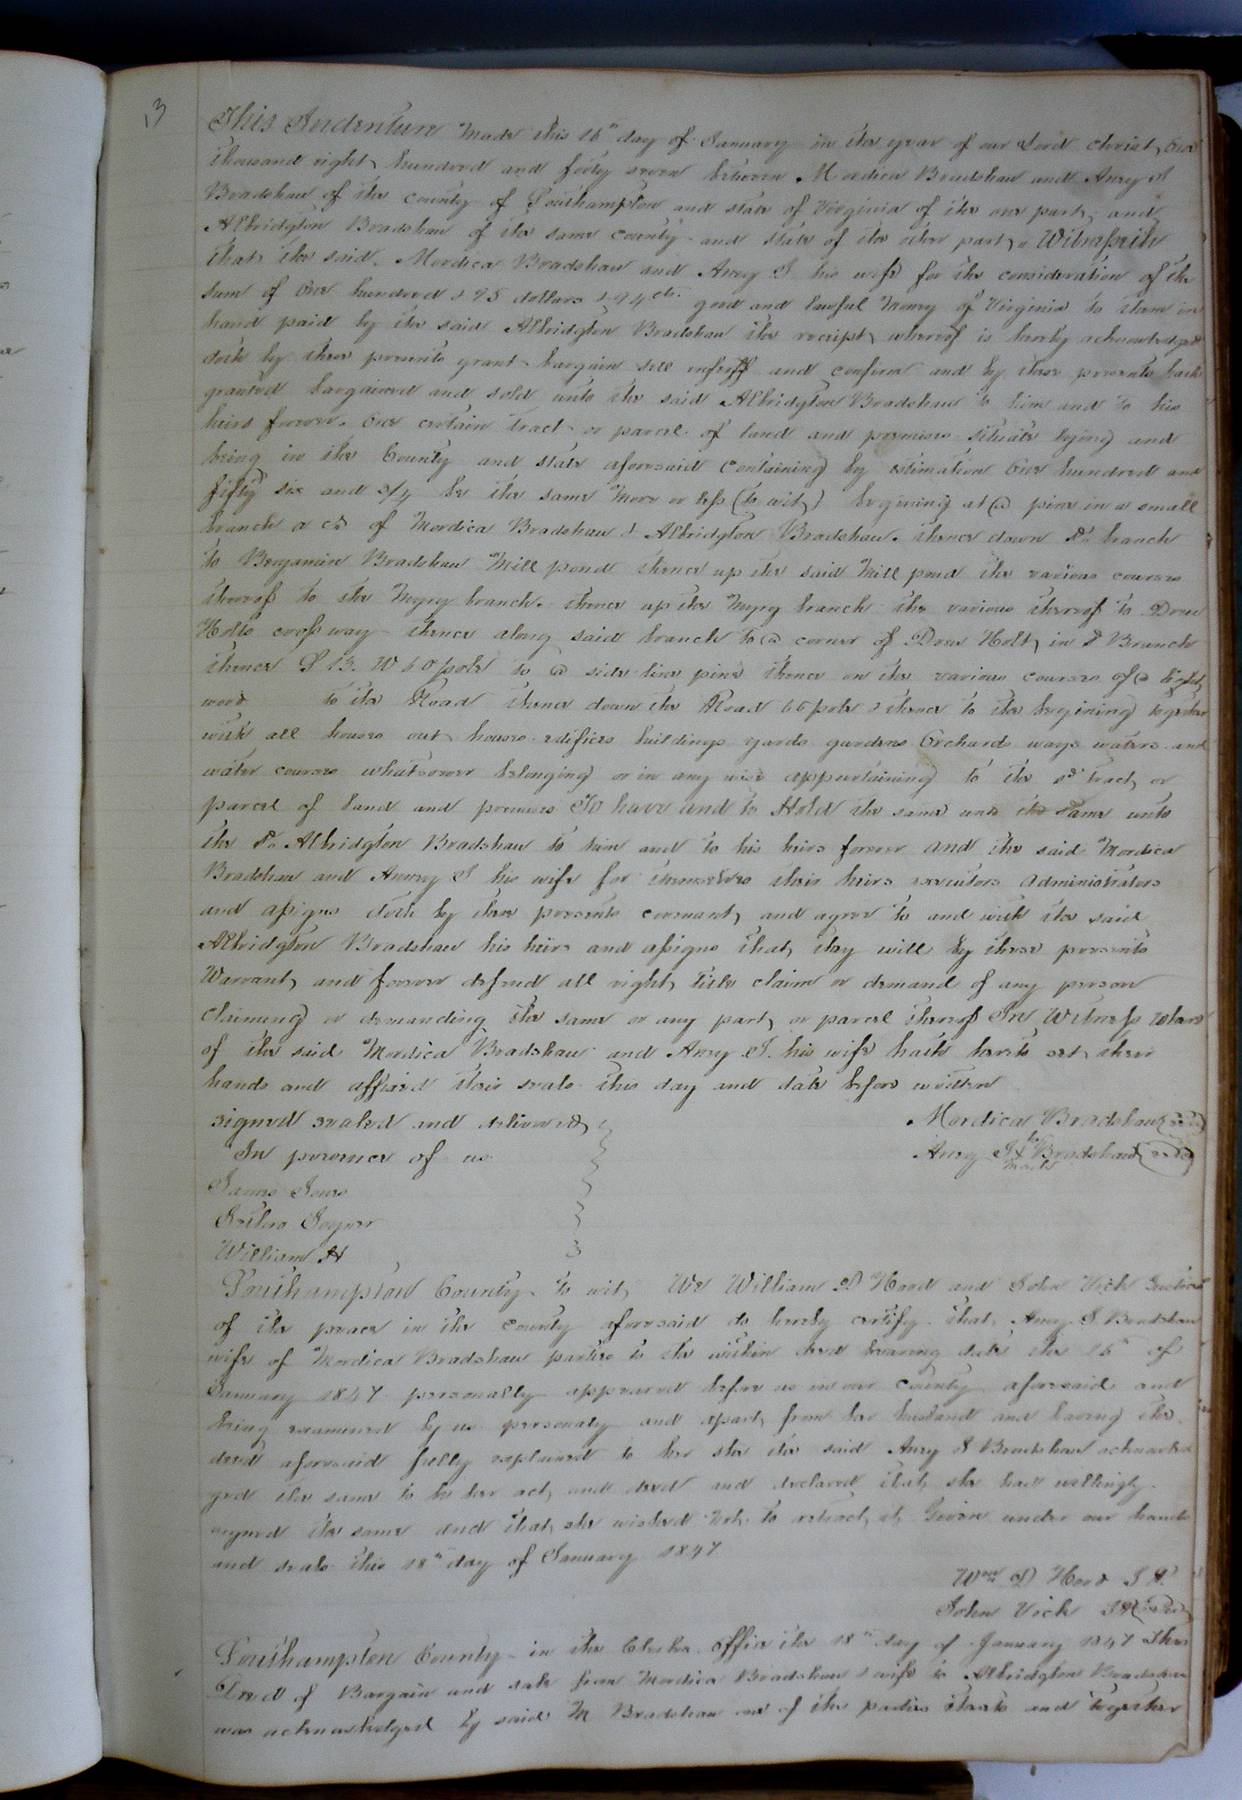 3
This Indenture Made this 16th day of January in the year of our Lord Christ, One
thousand eight hundred and forty seven between Mordica Bradshaw and Anry
Bradshaw of the county of Southampton and state of Virginia of the one part, and
Albridgton Bradshaw of the same county and state of the other part, Witnesseth
that the said Mordica Bradshaw and Anry S. his wife for the consideration of the
sum of One hundred & 95 dollars & 94 cts. good and lawful Money of Virginia to them in
hand paid by the said Albridgton Bradshaw the receipt whereof is hereby acknowledged
doth by these presents grant bargain sell and confirm and by these presents hath
granted bargained and sold unto the said Albridgton Bradshaw to him and to his
heirs forever. One certain tract or parcel of land and premises situate lying and
being in the County and state aforesaid containing by estimation One hundred and
fifty six and 3/4 be the same More or less (to wit) begining at a pine in a small
branch a cr of Mordica Bradshaw & Albridgton Bradshaw. thence down sd branch
to Benjamin Bradshaw Mill pond thence up the said Mill pond the various courses
thereof to the Myry branch. thence up the Myry branch the various thereof to Drew
Holts crossway thence along said branch to a corner of Drew Holt, in S Branch
thence S 13. W 60 pole to a side line pine thence on the various courses of a light
wood to the Road thence down the Road 66 pole & thence to the begining together
with all houses out houses edifices buildings yards gardens Orchards ways waters and
water courses whatsoever belonging or in any wise appurtaining to the sd tract, or
parcel of land and premises To have and to Hold the same and the same unto
the sd Albridgton Bradshaw to him and to his heirs forever and the said Mordica
Bradshaw and Anrey S his wife for themselves their heirs executors administrators
and assigns doth by these presents covenant, and agree to and with the said
Albridgton Bradshaw his heirs and assigns that, they will by these presents
Warrant, and forever defend all right, title claim or demand of any person
claiming or demanding the same or any part, or parcel thereof In Witness where
of the said Mordica Bradshaw and Anry S. his wife hath hereto set their
hands and affixed their seals this day and date before written
signed sealed and delivered Mordica Bradshaw (seal)
In presence of us Anry S X Bradshaw (seal)
mark
James Jones
William H
Southampton County to wit, We William D Hood and John Vick Justices
of the peace in the county aforesaid do hereby certify that, Anry S Bradshaw
wife of Mordica Bradshaw parties to the within deed bearing date the 16th of
January 1847 personally appeared before us in our county aforesaid and
being examined by us personaly and apart, from her husband and having the
deed aforesaid fully explained to her she the said Anry S Bradshaw acknowled
ged the same to be her act, and deed and declared that, she had willingly
signed the same and that, she wished not to retract, it, Given under our hands
and seals this 18th day of January 1847.
Wm D Hood J P
John Vick JP (Seal)
Southampton County in the Clerks office the 18th day of January 1847 This
Deed of Bargain and sale from Mordica Bradshaw & wife to Albridgton Bradshaw
was acknowledged by said M Bradshaw one of the parties thereto and together